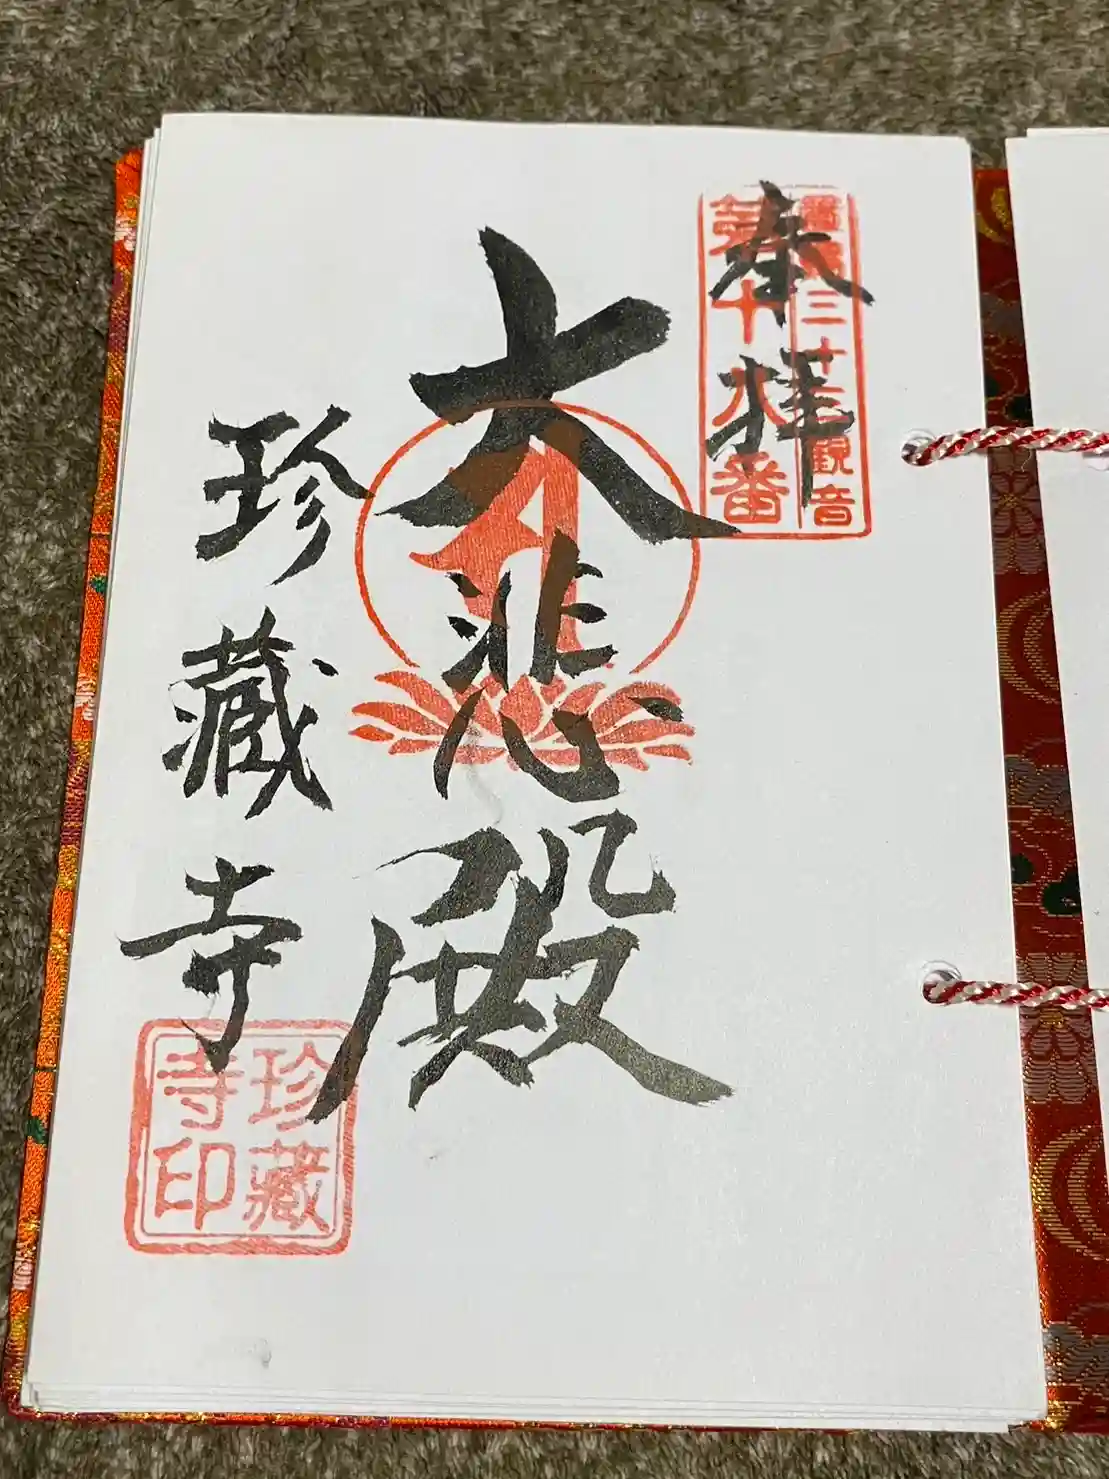 奉拝
置賜三十三観音
第十八番
大悲殿
珍藏寺
珍藏
寺印